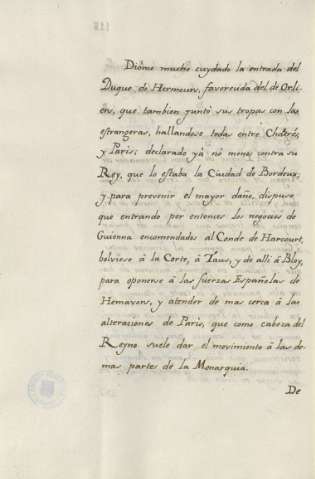 Dióme mucho cuydado la entrada del
Duque de Hermeurs, favorecida del de Orli
ens, que tambien juntó sus tropas con las
estrangeras, hallandose todas entre Chátrés,
y Paris; declarado yá no menos contra su
Rey, que lo estaba la Ciudad de Bordeux;
y para prevenir el mayor daño, dispuse
que entrando por entonces los negocios de
Guienna encomendados al Conde de Harcourt,
bolviese á la Corte, á Taus, y de alli á Bloy,
para oponerse á las fuerzas Españolas de
Hemavers, y atender de mas cerca á las
alteraciones de Paris, que como cabeza del
Reyno suele dar el movimiento á las de
mas partes de la Monarquia.
De